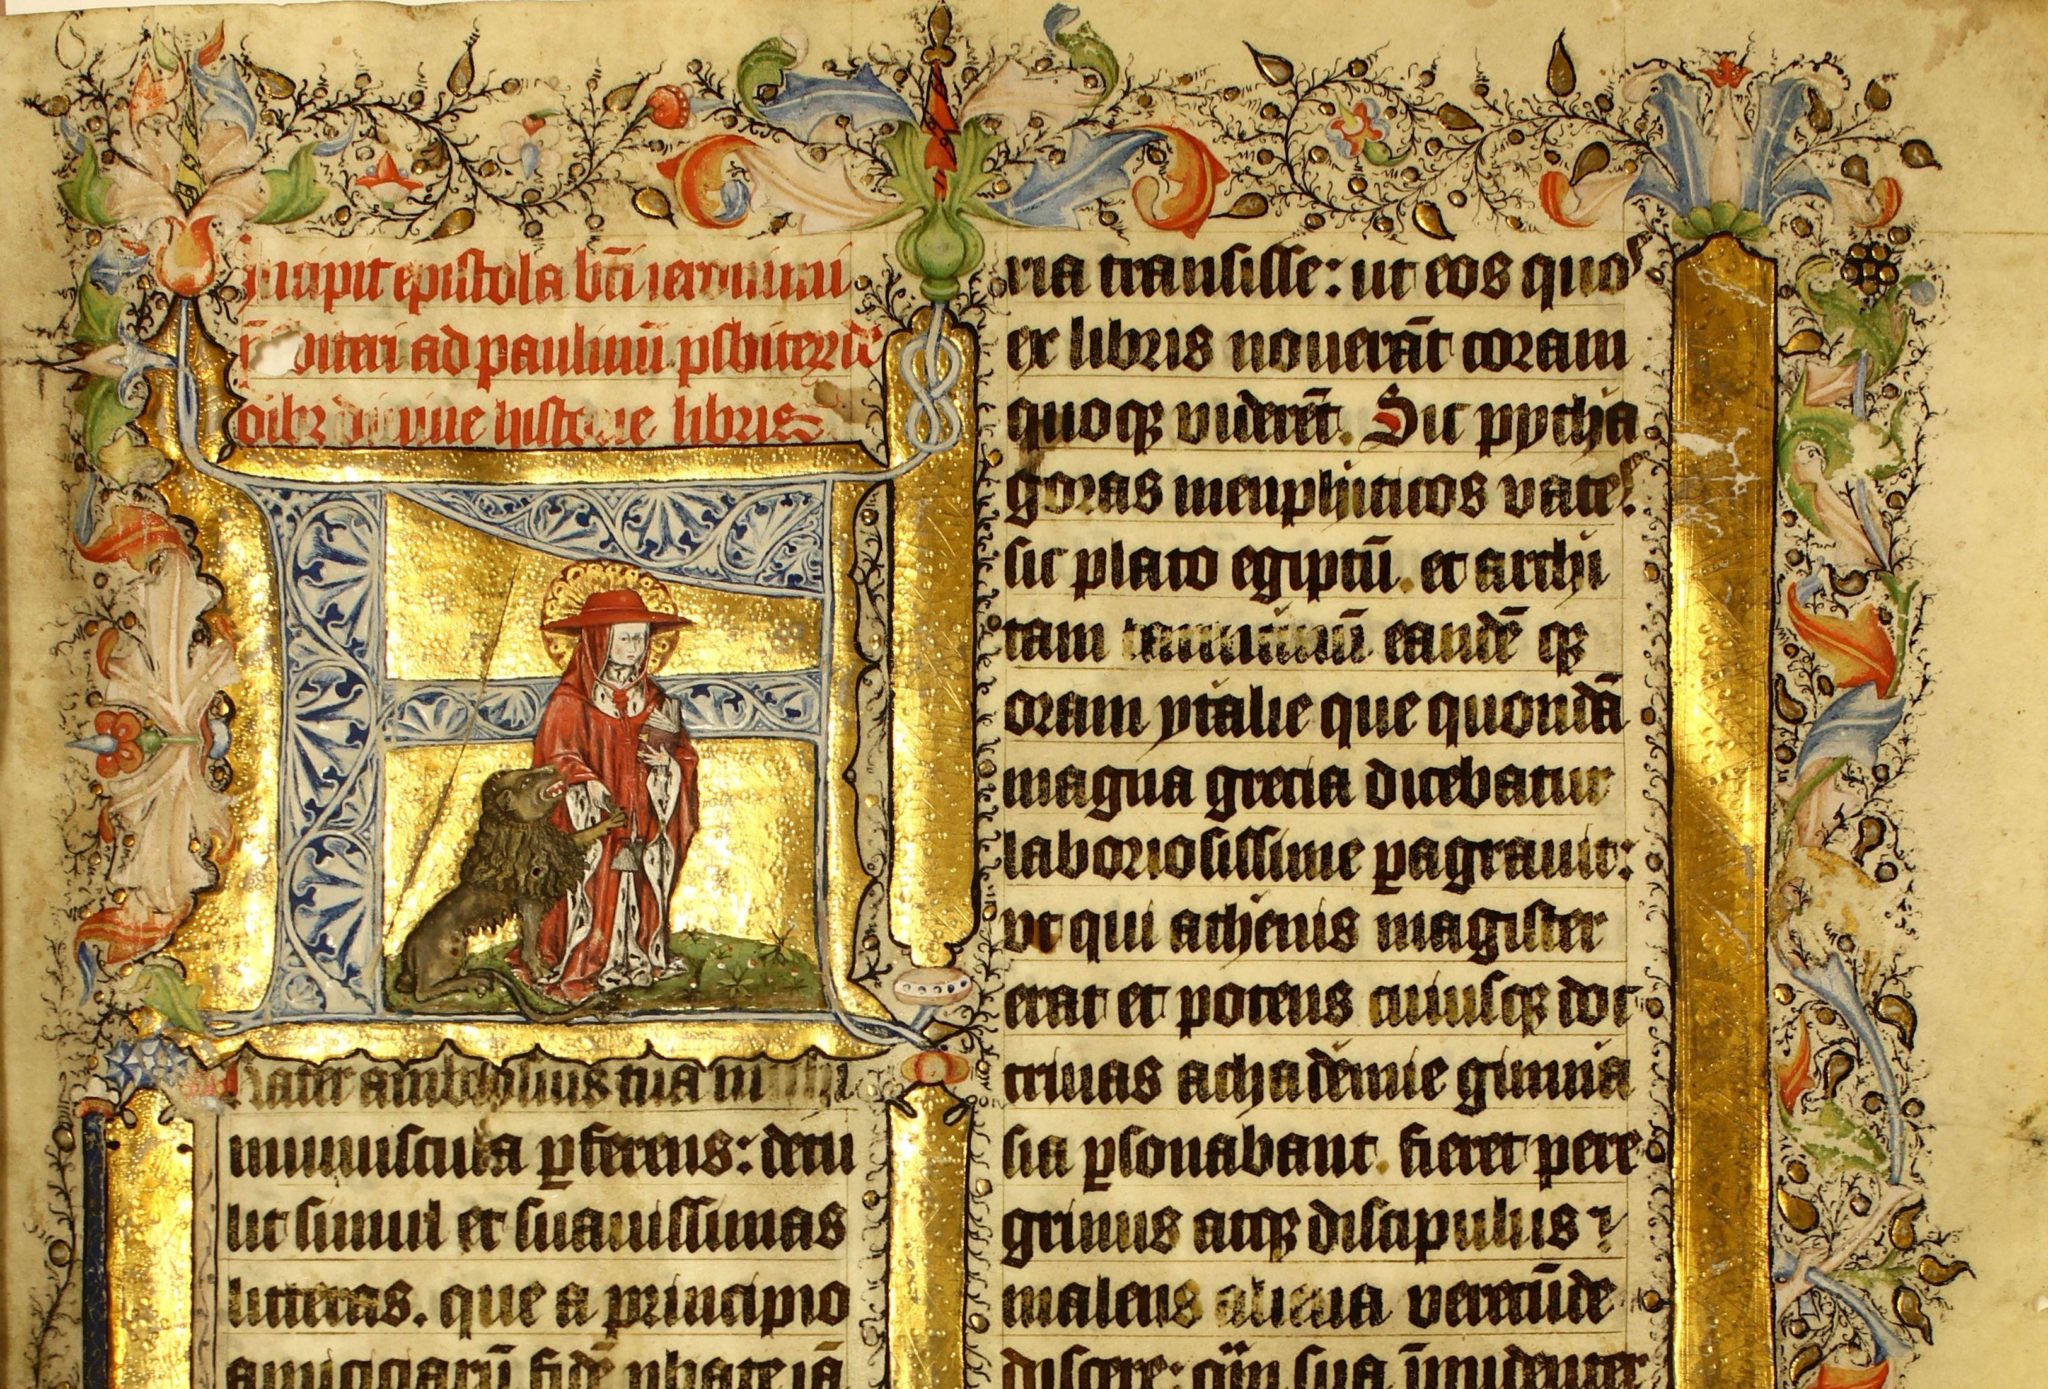 Incipit epistola bti ieronimi
ad paulinū psbiterū de
oībꝫ diuine historie libris
F
Rater ambrosius tua michi
munuscula ꝑferens: detu
lit simul et suauissimas
litteras. que a principio
amiciciarū fidē ꝓbate iā
ria transisse: ut eos quos
ex libris nouerāt coram
quoqꝫ viderēt. Sic pytha
goras menphiticos vates.
sic plato egiptū. et archi
tam tarentinū eandē qꝫ
oram ytalie que quondā
magna grecia dicebatur
laboriosissime ꝑagrauit:
vt qui athenis magister
erat et potens cuiusqꝫ doc
trinas achademie gimna
sia ꝑsonabant. fieret pere
grinus atqꝫ discipulus:
malens aliena verecūde
discere: qͣm sua īpudenter